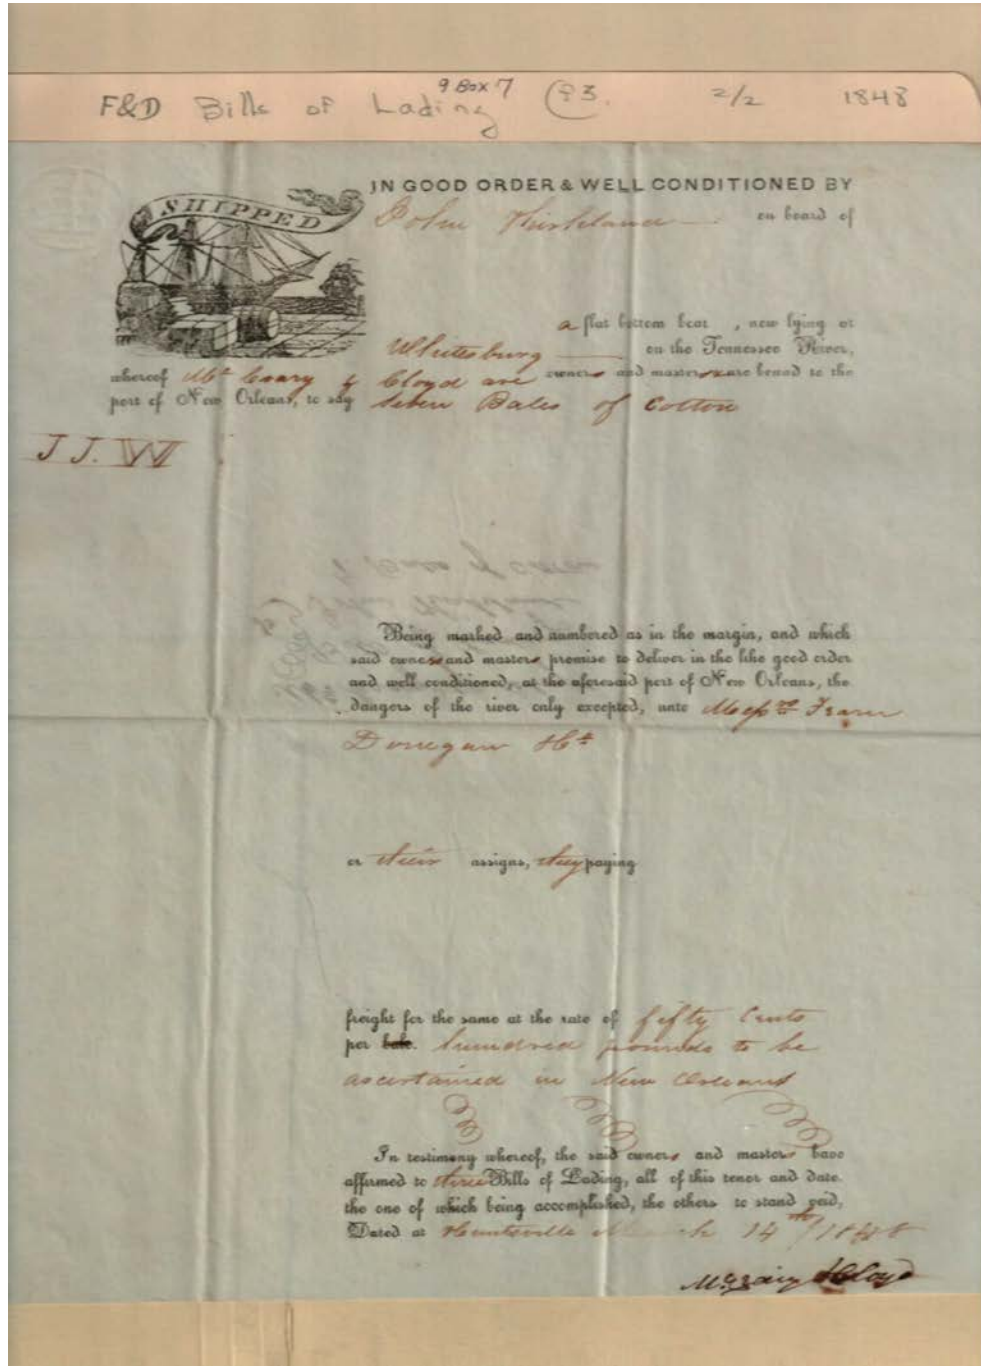 9 Box 7
F&D Bills of Lading P3. 2/2 1848
SHIPPED
IN GOOD ORDER & WELL CONDITIONED BY
John Kirkland on board of
a flat bottom boat, now lying at
Whitesburg on the Tennessee River,
whereof McCrary & Cloyd are owners and masters are bound to the
port of New Orleans, to say Seven Bales of Cotton
J J. W
Bales of Cotton
John Kirkland
Being marked and numbered as in the margin, and which
said owners and masters promise to deliver in the like good order
and well conditioned, at the aforesaid port of New Orleans, the
dangers of the river only excepted, unto Messrs
Donegan
or their assigns, they paying
freight for the same at the rate of fifty Cents
per bale. hundred pounds to be
ascertained in New Orleans
In testimony whereof, the said owners and masters have
affirmed to three Bills of Lading, all of this tenor and date.
the one of which being accomplished, the others to stand void,
Dated at Huntsville March 14th 1848
Cloyd